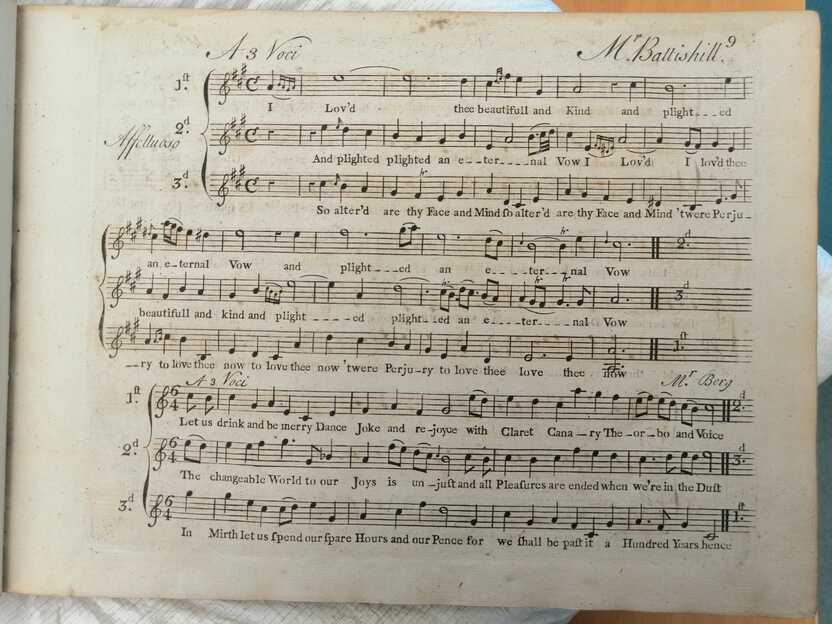 A 3 Voci Mr. Battishill. 9
1.st
I Lov'd thee beautifull and Kind and plight---ed
Affettuoso 2.d
And plighted plighted an e-ter----nal Vow I Lov'd I lov'd thee
3.d
So alter'd are thy Face and Mind so alter'd are thy Face and Mind 'twere Perju-
an e-ternal Vow and plight---ed an e---ter---nal Vow 2.d
beautifull and kind and plight---ed plight--ed an e----ter----nal Vow 3.d
--ry to love thee now to love thee now 'twere Perju-ry to love thee love thee now 1.st
A 3 Voci Mr. Berg
1.st
Let us drink and be merry Dance Joke and re-joyce with Claret Cana--ry The-or-bo and Voice 2.d
2.d
The changeable World to our Joys is un-just and all Pleasures are ended when we're in the Dust 3.d
3.d
In Mirth let us spend our spare Hours and our Pence for we shall be past it a Hundred Years hence 1.st